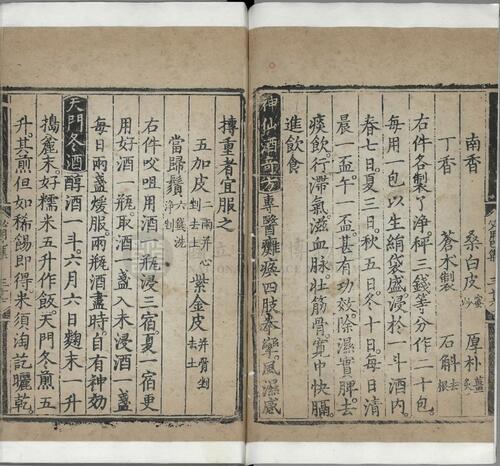 南香　桑白皮蜜炒　厚朴薑炙
丁香　蒼朮製　石斛去根
右件各製了淨秤三錢等分作二十包
每用一包以生絹袋盛浸於一斗酒內
春七日夏三日秋五日冬十日每日清
晨一盃午一盃甚有功效除濕實脾去
痰飲行滯氣滋血脉壯筋骨寬中快膈
進飲食
神仙酒奇方專醫癱瘓四肢拳攣風濕感
搏重者宜服之
五加皮剉去土兩并心　紫金皮并骨剉去土
當歸鬚六錢洗淨剉
右件㕮咀用酒一瓶浸三宿夏一宿更
用好酒一瓶取酒一盞入未浸酒一盞
每日兩盞煖服兩瓶酒盡時自有神効
天門冬酒醇酒一斗六月六日麴末一升
搗麄末好糯米五升作飯天門冬煎五
升其煎但如稀餳即得米須淘訖曬乾